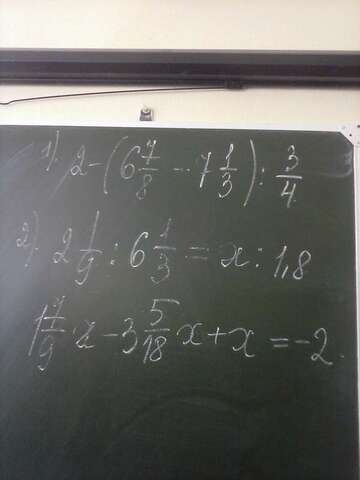 1). 2-(6 7/8 - 7 1/3) : 3/4
2). 2 1/9 : 6 1/3 = x : 1,8
1 7/9 x - 3 5/18 x + x = -2